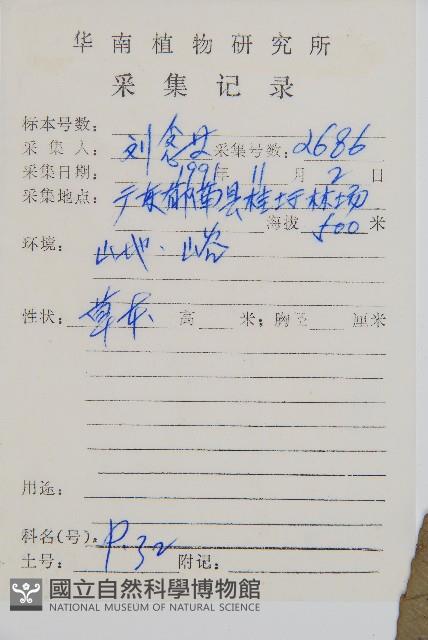 华南植物研究所
采集记录
标本号数：
采集人：刘念 采集号数：2686
采集日期：1991年11月2日
采集地点：广东郁南县桂圩林场
海拔 500 米
环境：山地、山谷
性状：草本 高 米；胸径 厘米
用途：
科名(号)：P.32
土号： 附记：
國立自然科學博物館
NATIONAL MUSEUM OF NATURAL SCIENCE